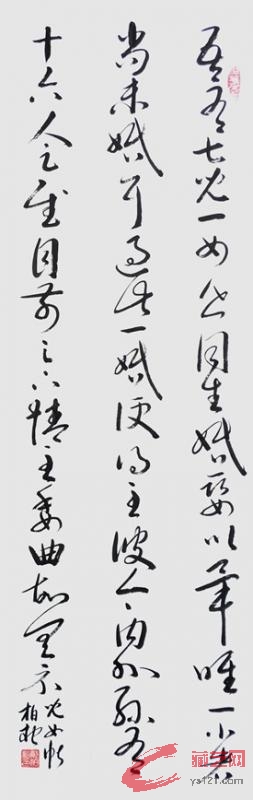 吾有七兒一女皆同生婚娶以畢唯一小者
尚未婚耳過此一婚便得至彼今內外孫有
十六人足慰目前足下情至委曲故具示
兒女帖
ys121.com